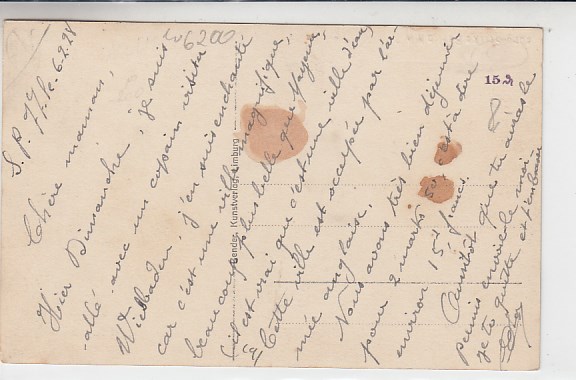 S. P. 77. le 6.2.28
Chère maman,
Hier Dimanche, je suis
allé avec un copain visiter
Wiesbaden. j'en suis enchanté
car c'est une ville magnifique,
beaucoup plus belle que Mayence,
(il est vrai que c'est une ville d'eau)
Cette ville est occupée par l'ar-
mée anglaise.
Nous avons très bien déjeuner
pour 2 marks 50, c'est à dire
environ 15 francs.
Aussitôt que tu auras le
permis envoie le moi
je te quitte et t'embrasse
6200
15.
Bender, Kunstverlag, Limburg